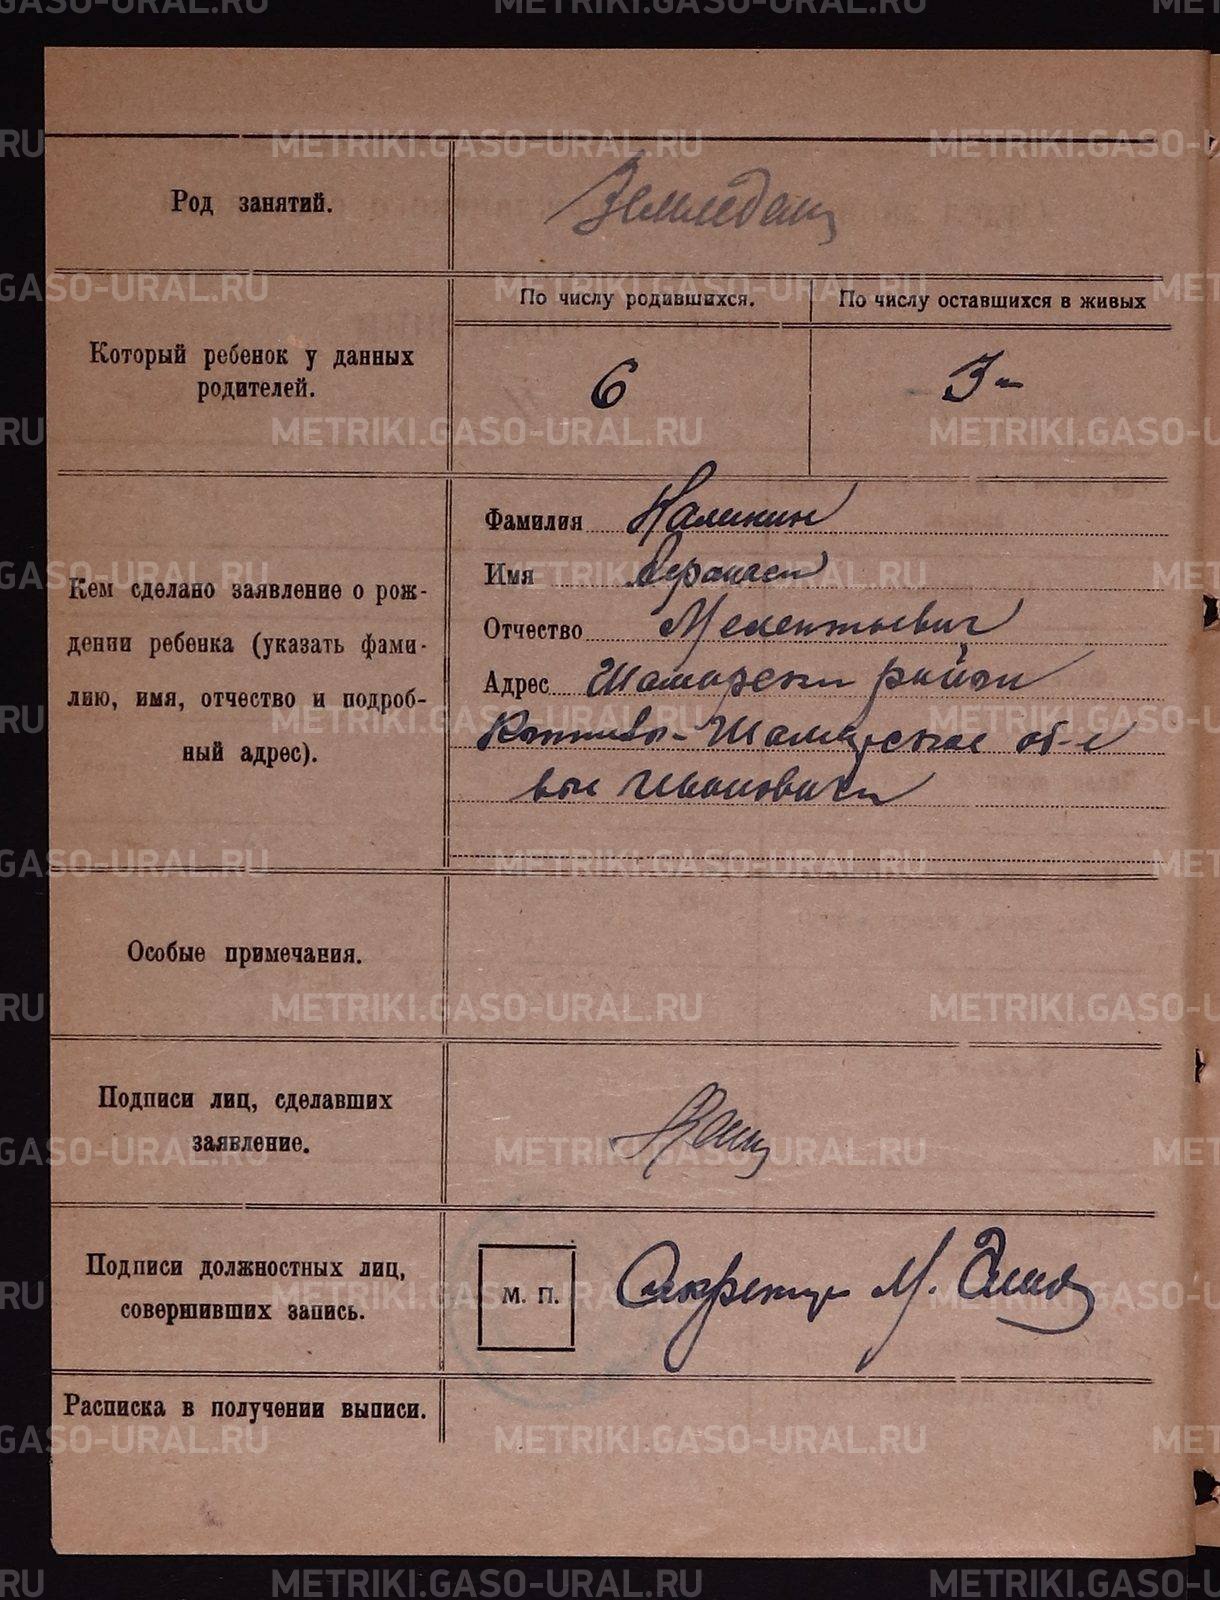 Род занятий.
Земледелец
Который ребенок у данных
родителей.
По числу родившихся.
По числу оставшихся в живых
6
3
Кем сделано заявление о рож-
дении ребенка (указать фами-
лию, имя, отчество и подроб-
ный адрес).
Фамилия Калинин
Имя Афанасий
Отчество Мелентьевич
Адрес Шамарский район
Шамарское об-е
Особые примечания.
Подписи лиц, сделавших
заявление.
Подписи должностных лиц,
совершивших запись.
М. П.
Секретарь М.
Расписка в получении выписи.
METRIKI.GASO-URAL.RU